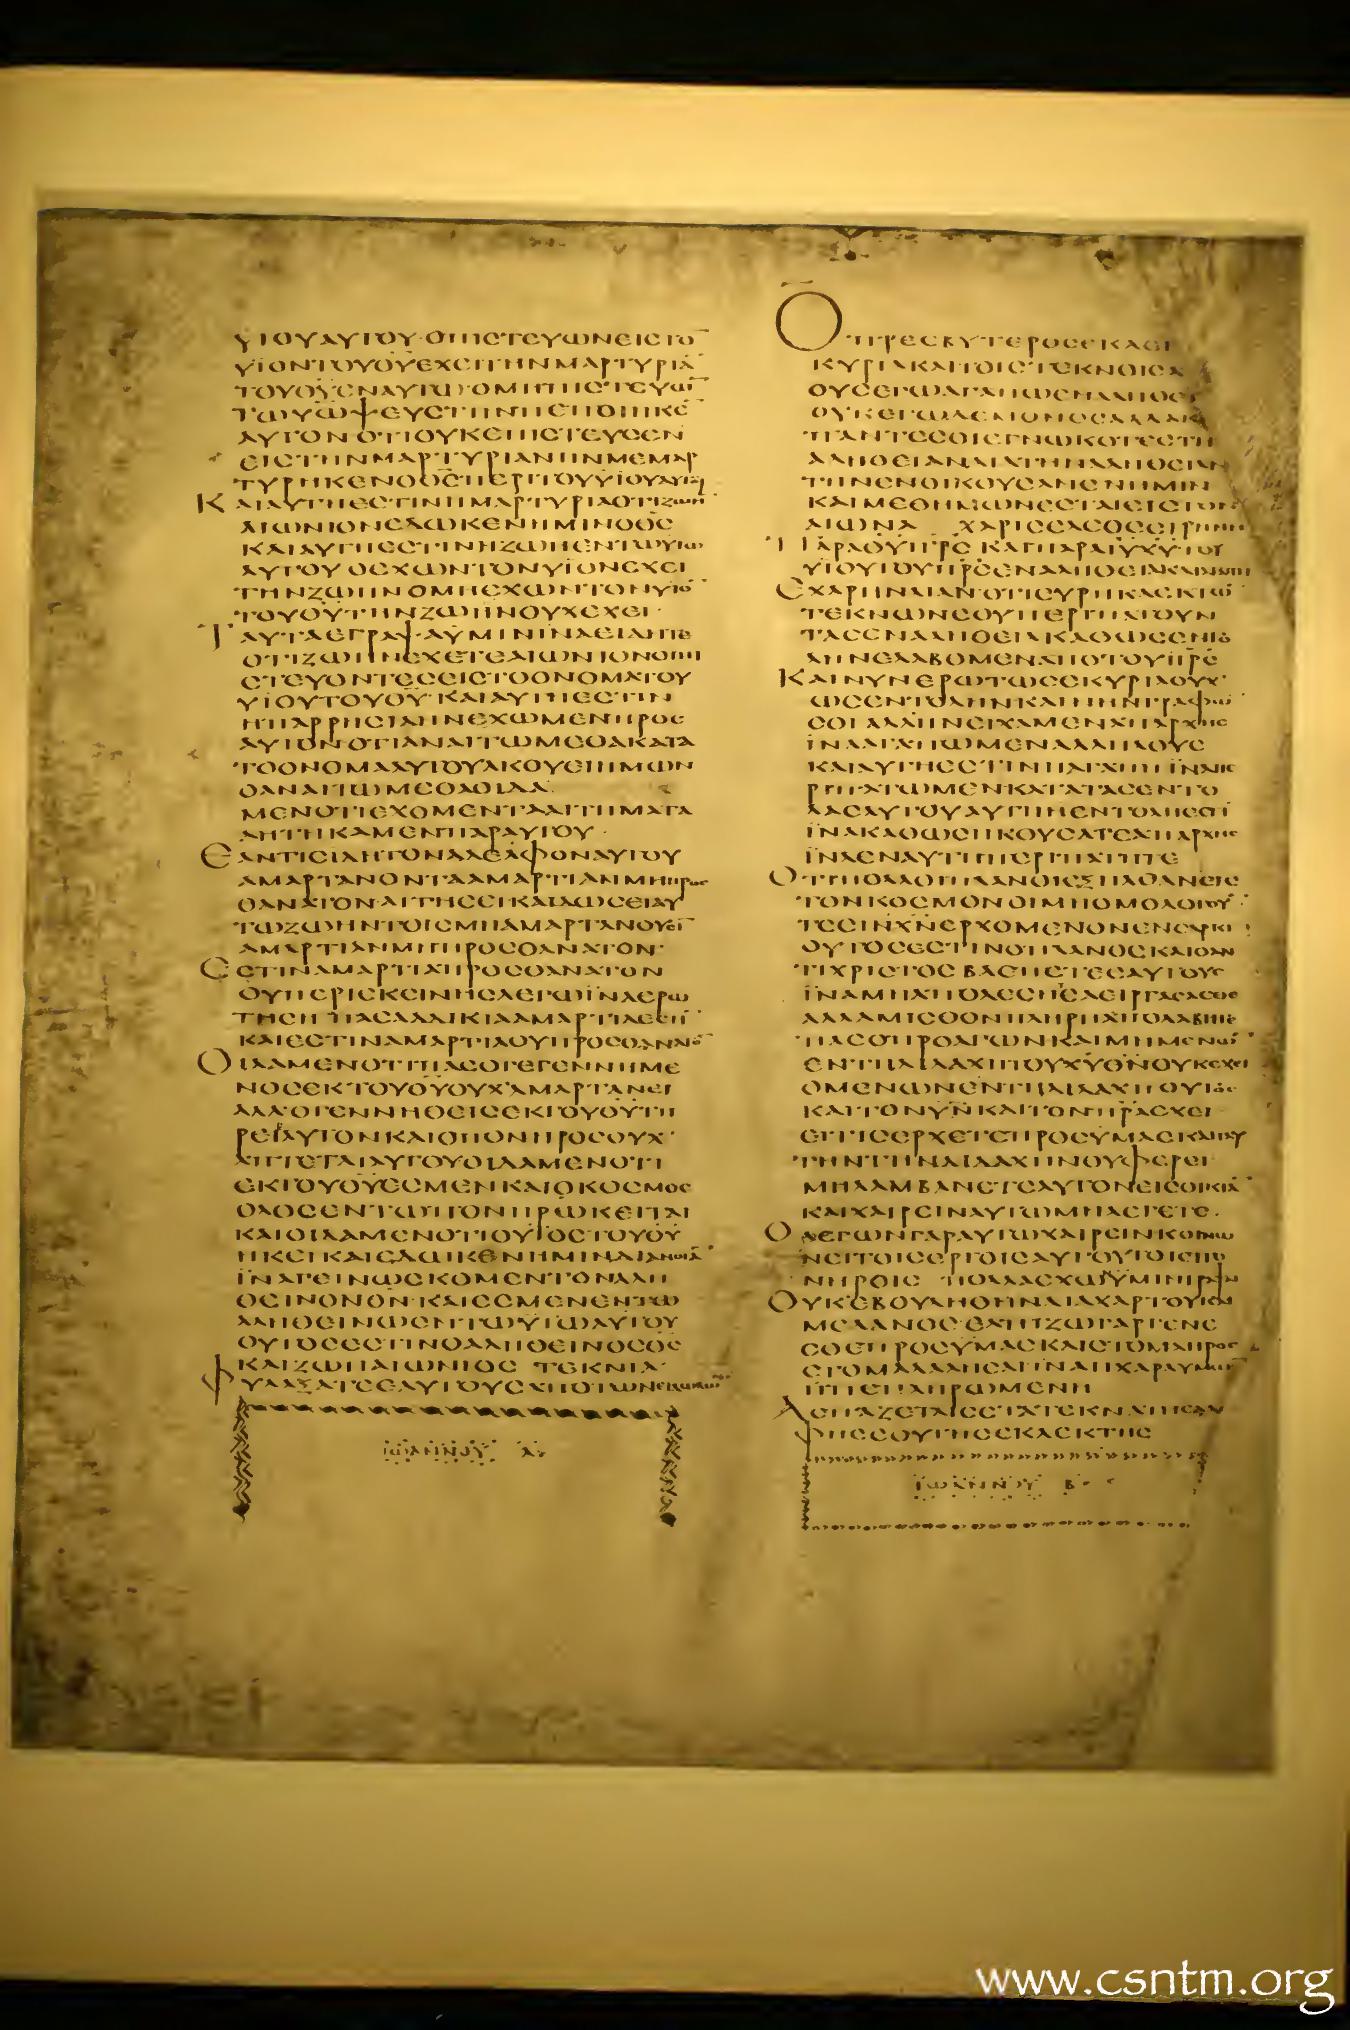 ΥΙΟΥΑΥΤΟΥ·ΟΠΙϹΤΕΥΩΝΕΙϹΤΟ̅
ΥΙΟΝΤΟΥΘ̅Υ̅ΕΧΕΙΤΗΝΜΑΡΤΥΡΙΑ̅
ΤΟΥΘ̅Υ̅ΕΝΑΥΤΩ·ΟΜΗΠΙϹΤΕΥΩ̅
ΤΩΥΩΨΕΥϹΤΗΝΠΕΠΟΙΗΚΕ̅
ΑΥΤΟΝ·ΟΤΙΟΥΚΕΠΙϹΤΕΥϹΕΝ
ΕΙϹΤΗΝΜΑΡΤΥΡΙΑΝΗΝΜΕΜΑΡ
ΤΥΡΗΚΕΝΟΘ̅Ϲ̅ΠΕΡΙΤΟΥΥΙΟΥΑΥΤΟΥ
ΚΑΙΑΥΤΗΕϹΤΙΝΗΜΑΡΤΥΡΙΑΟΤΙΖΩΗΝ
ΑΙΩΝΙΟΝΕΔΩΚΕΝΗΜΙΝΟΘ̅Ϲ̅
ΚΑΙΑΥΤΗΕϹΤΙΝΗΖΩΗΕΝΤΩΥΙΩ
ΑΥΤΟΥ ΟΕΧΩΝΤΟΝΥΙΟΝΕΧΕΙ
ΤΗΝΖΩΗΝΟΜΗΕΧΩΝΤΟΝΥΙΟ̅
ΤΟΥΘ̅Υ̅ΤΗΝΖΩΗΝΟΥΧΕΧΕΙ·
ΤΑΥΤΑΕΓΡΑΨΑΥΜΙΝΙΝΑΕΙΔΗΤΕ
ΟΤΙΖΩΗΝΕΧΕΤΕΑΙΩΝΙΟΝΟΙΠΙ
ϹΤΕΥΟΝΤΕϹΕΙϹΤΟΟΝΟΜΑΤΟΥ
ΥΙΟΥΤΟΥΘ̅Υ̅·ΚΑΙΑΥΤΗΕϹΤΙΝ
ΗΠΑΡΡΗϹΙΑΗΝΕΧΩΜΕΝΠΡΟϹ
ΑΥΤΟΝΟΤΙΑΝΑΙΤΩΜΕΘΑΚΑΤΑ
ΤΟΟΝΟΜΑΑΥΤΟΥΑΚΟΥΕΙΗΜΩΝ
ΟΑΝΑΙΤΩΜΕΘΑΟΙΔΑ
ΜΕΝΟΤΙΕΧΟΜΕΝΤΑΑΙΤΗΜΑΤΑ
ΑΗΤΗΚΑΜΕΝΠΑΡΑΥΤΟΥ·
ΕΑΝΤΙϹΙΔΗΤΟΝΑΔΕΛΦΟΝΑΥΤΟΥ
ΑΜΑΡΤΑΝΟΝΤΑΑΜΑΡΤΙΑΝΜΗΠΡΟϹ
ΘΑΝΑΤΟΝ·ΑΙΤΗϹΕΙΚΑΙΔΩϹΕΙΑΥ
ΤΩΖΩΗΝΤΟΙϹΜΗΑΜΑΡΤΑΝΟΥϹΙ̅
ΑΜΑΡΤΙΑΝΜΗΠΡΟϹΘΑΝΑΤΟΝ·
ΕϹΤΙΝΑΜΑΡΤΙΑΠΡΟϹΘΑΝΑΤΟΝ
ΟΥΠΕΡΙΕΚΕΙΝΗϹΛΕΓΩΙΝΑΕΡΩ
ΤΗϹΗ ΠΑϹΑΑΔΙΚΙΑΑΜΑΡΤΙΑΕϹΤΙ̅
ΚΑΙΕϹΤΙΝΑΜΑΡΤΙΑΟΥΠΡΟϹΘΑΝΑΤΟ̅
ΟΙΔΑΜΕΝΟΤΙΠΑϹΟΓΕΓΕΝΝΗΜΕ
ΝΟϹΕΚΤΟΥΘ̅Υ̅ΟΥΧΑΜΑΡΤΑΝΕΙ
ΑΛΛΟΓΕΝΝΗΘΕΙϹΕΚΤΟΥΘ̅Υ̅ΤΗ
ΡΕΙΑΥΤΟΝΚΑΙΟΠΟΝΗΡΟϹΟΥΧ
ΑΠΤΕΤΑΙΑΥΤΟΥΟΙΔΑΜΕΝΟΤΙ
ΕΚΤΟΥΘ̅Υ̅ΕϹΜΕΝΚΑΙΟΚΟϹΜΟϹ
ΟΛΟϹΕΝΤΩΠΟΝΗΡΩΚΕΙΤΑΙ
ΚΑΙΟΙΔΑΜΕΝΟΤΙΟΥΙΟϹΤΟΥΘ̅Υ̅
ΗΚΕΙΚΑΙΕΔΩΚΕΝΗΜΙΝΔΙΑΝΟΙΑ̅
ΙΝΑΓΕΙΝΩϹΚΟΜΕΝΤΟΝΑΛΗ
ΘΕΙΝΟΝΘ̅Ν̅·ΚΑΙΕϹΜΕΝΕΝΤΩ
ΑΛΗΘΕΙΝΩΕΝΤΩΥΙΩΑΥΤΟΥ
ΟΥΤΟϹΕϹΤΙΝΟΑΛΗΘΕΙΝΟϹΘ̅Ϲ̅
ΚΑΙΖΩΗΑΙΩΝΙΟϹ ΤΕΚΝΙΑ
ΦΥΛΑΞΑΤΕΕΑΥΤΟΥϹΑΠΟΤΩΝΕΙΔΩΛΩ̅
ΙΩΑΝΝΟΥ Α
ΟΠΡΕϹΒΥΤΕΡΟϹΕΚΛΕΚΤΗ
ΚΥΡΙΑΚΑΙΤΟΙϹΤΕΚΝΟΙϹΑ
ΟΥϹΕΓΩΑΓΑΠΩΕΝΑΛΗΘΕΙ
ΟΥΚΕΓΩΔΕΜΟΝΟϹΑΛΛΑΚ
ΠΑΝΤΕϹΟΙΕΓΝΩΚΟΤΕϹΤΗ
ΑΛΗΘΕΙΑΝΔΙΑΤΗΝΑΛΗΘΕΙΑΝ
ΤΗΝΕΝΟΙΚΟΥϹΑΝΕΝΗΜΙΝ
ΚΑΙΜΕΘΗΜΩΝΕϹΤΑΙΕΙϹΤΟΝ
ΑΙΩΝΑ ΧΑΡΙϹΕΛΕΟϹΕΙΡΗΝΗ
ΠΑΡΑΘ̅Υ̅Π̅Ρ̅Ϲ̅ ΚΑΙΠΑΡΑΙ̅Υ̅Χ̅Υ̅ΤΟΥ
ΥΙΟΥΤΟΥΠ̅Ρ̅Ϲ̅ΕΝΑΛΗΘΕΙΑΚΑΙΑΓΑΠΗ
ΕΧΑΡΗΝΛΙΑΝΟΤΙΕΥΡΗΚΑΕΚΤΩ̅
ΤΕΚΝΩΝϹΟΥΠΕΡΙΠΑΤΟΥΝ
ΤΑϹΕΝΑΛΗΘΕΙΑΚΑΘΩϹΕΝΤΟ
ΛΗΝΕΛΑΒΟΜΕΝΑΠΟΤΟΥΠ̅Ρ̅Ϲ̅
ΚΑΙΝΥΝΕΡΩΤΩϹΕΚΥΡΙΑΟΥΧ
ΩϹΕΝΤΟΛΗΝΚΑΙΝΗΝΓΡΑΦΩ
ϹΟΙΑΛΛΑΗΝΕΙΧΑΜΕΝΑΠΑΡΧΗϹ
ΙΝΑΑΓΑΠΩΜΕΝΑΛΛΗΛΟΥϹ
ΚΑΙΑΥΤΗΕϹΤΙΝΗΑΓΑΠΗΙΝΑΠΕ
ΡΙΠΑΤΩΜΕΝΚΑΤΑΤΑϹΕΝΤΟ
ΛΑϹΑΥΤΟΥΑΥΤΗΗΕΝΤΟΛΗΕϹΤΙ
ΙΝΑΚΑΘΩϹΗΚΟΥϹΑΤΕΑΠΑΡΧΗϹ
ΙΝΑΕΝΑΥΤΗΠΕΡΙΠΑΤΗΤΕ
ΟΤΙΠΟΛΛΟΙΠΛΑΝΟΙΕΞΗΛΘΑΝΕΙϹ
ΤΟΝΚΟϹΜΟΝΟΙΜΗΟΜΟΛΟΓΟΥ̅
ΤΕϹΙ̅Ν̅Χ̅Ν̅ΕΡΧΟΜΕΝΟΝΕΝϹΑΡΚΙ
ΟΥΤΟϹΕϹΤΙΝΟΠΛΑΝΟϹΚΑΙΟΑΝ
ΤΙΧΡΙϹΤΟϹ ΒΛΕΠΕΤΕΕΑΥΤΟΥϹ
ΙΝΑΜΗΑΠΟΛΕϹΗΤΕΑΕΙΡΓΑϹΑϹΘΕ
ΑΛΛΑΜΙϹΘΟΝΠΛΗΡΗΑΠΟΛΑΒΗΤΕ
ΠΑϹΟΠΡΟΑΓΩΝΚΑΙΜΗΜΕΝΩ̅
ΕΝΤΗΔΙΔΑΧΗΤΟΥΧ̅Υ̅Θ̅Ν̅ΟΥΚΕΧΕΙ
ΟΜΕΝΩΝΕΝΤΗΔΙΔΑΧΗΟΥΤΟϹ
ΚΑΙΤΟΝΥ̅Ν̅ΚΑΙΤΟΝΠ̅Ρ̅Α̅ΕΧΕΙ
ΕΙΤΙϹΕΡΧΕΤΕΠΡΟϹΥΜΑϹΚΑΙΤΑΥ
ΤΗΝΤΗΝΔΙΔΑΧΗΝΟΥΦΕΡΕΙ
ΜΗΛΑΜΒΑΝΕΤΕΑΥΤΟΝΕΙϹΟΙΚΙΑ̅
ΚΑΙΧΑΙΡΕΙΝΑΥΤΩΜΗΛΕΓΕΤΕ·
ΟΛΕΓΩΝΓΑΡΑΥΤΩΧΑΙΡΕΙΝΚΟΙΝΩ
ΝΕΙΤΟΙϹΕΡΓΟΙϹΑΥΤΟΥΤΟΙϹΠΟ
ΝΗΡΟΙϹ ΠΟΛΛΑΕΧΩΥΜΙΝΓΡΑΨΑΙ
ΟΥΚΕΒΟΥΛΗΘΗΝΔΙΑΧΑΡΤΟΥΚΑΙ
ΜΕΛΑΝΟϹΕΛΠΙΖΩΓΑΡΓΕΝΕ
ϹΘΕΠΡΟϹΥΜΑϹΚΑΙϹΤΟΜΑΠΡΟϹ
ϹΤΟΜΑΛΑΛΗϹΑΙΙΝΑΗΧΑΡΑΥΜΩ̅
ΗΠΕΠΛΗΡΩΜΕΝΗ
ΑϹΠΑΖΕΤΑΙϹΕΤΑΤΕΚΝΑΤΗϹΑΔΕΛ
ΦΗϹϹΟΥΤΗϹΕΚΛΕΚΤΗϹ
ΙΩΑΝΝΟΥ Β
www.csntm.org